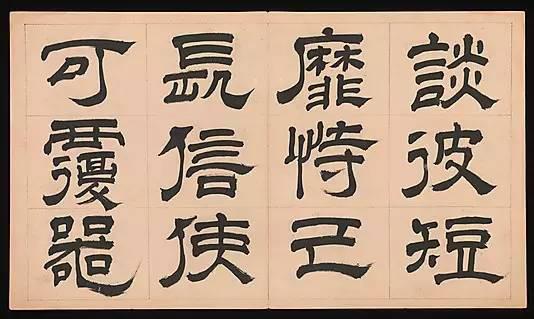 談彼短
靡恃己
長信使
可覆器